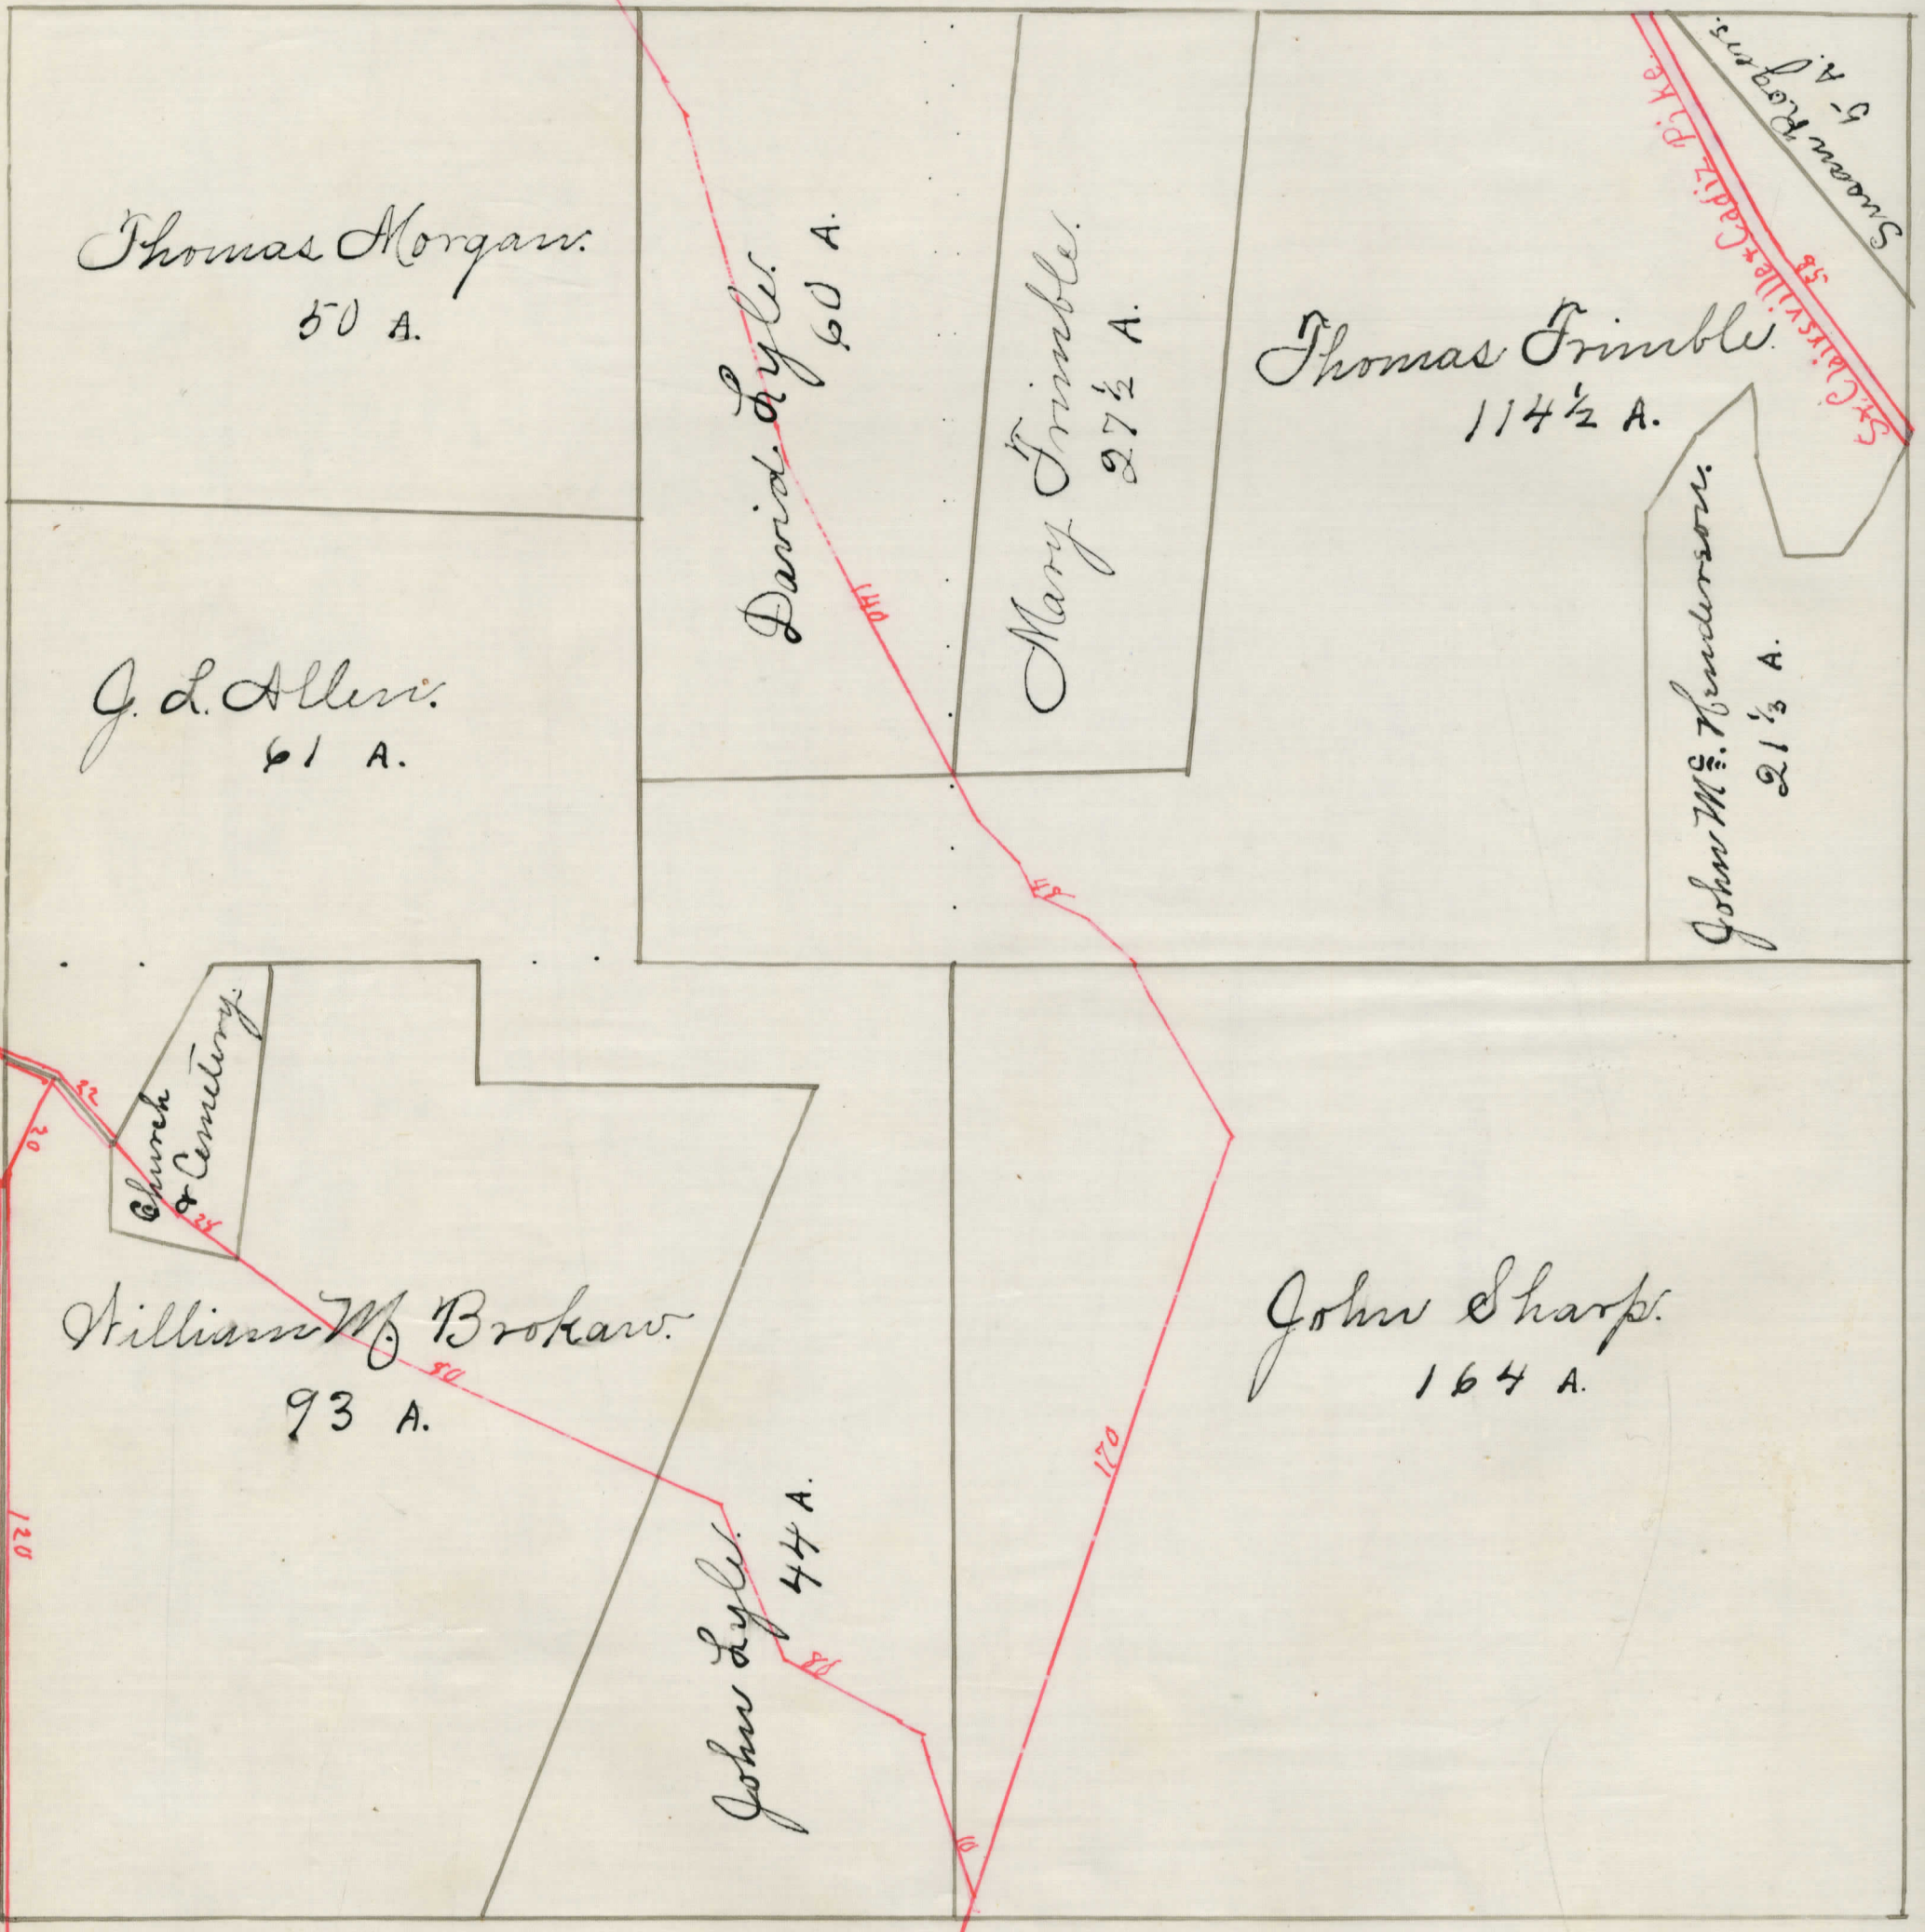 Thomas Morgan.
50 A.
David Lyle.
60 A.
Mary Trimble.
27 1/2 A.
Thomas Trimble.
114 1/2 A.
St. Clairsville & Cadiz Pike.
58
Susan Rogers.
5 A.
John Mc. Henderson.
21 1/3 A.
J. L. Allen.
61 A.
140
Church
& Cemetery.
32
20
24
William M. Brokaw.
93 A.
80
120
John Lyle.
44 A.
88
10
170
John Sharp.
164 A.